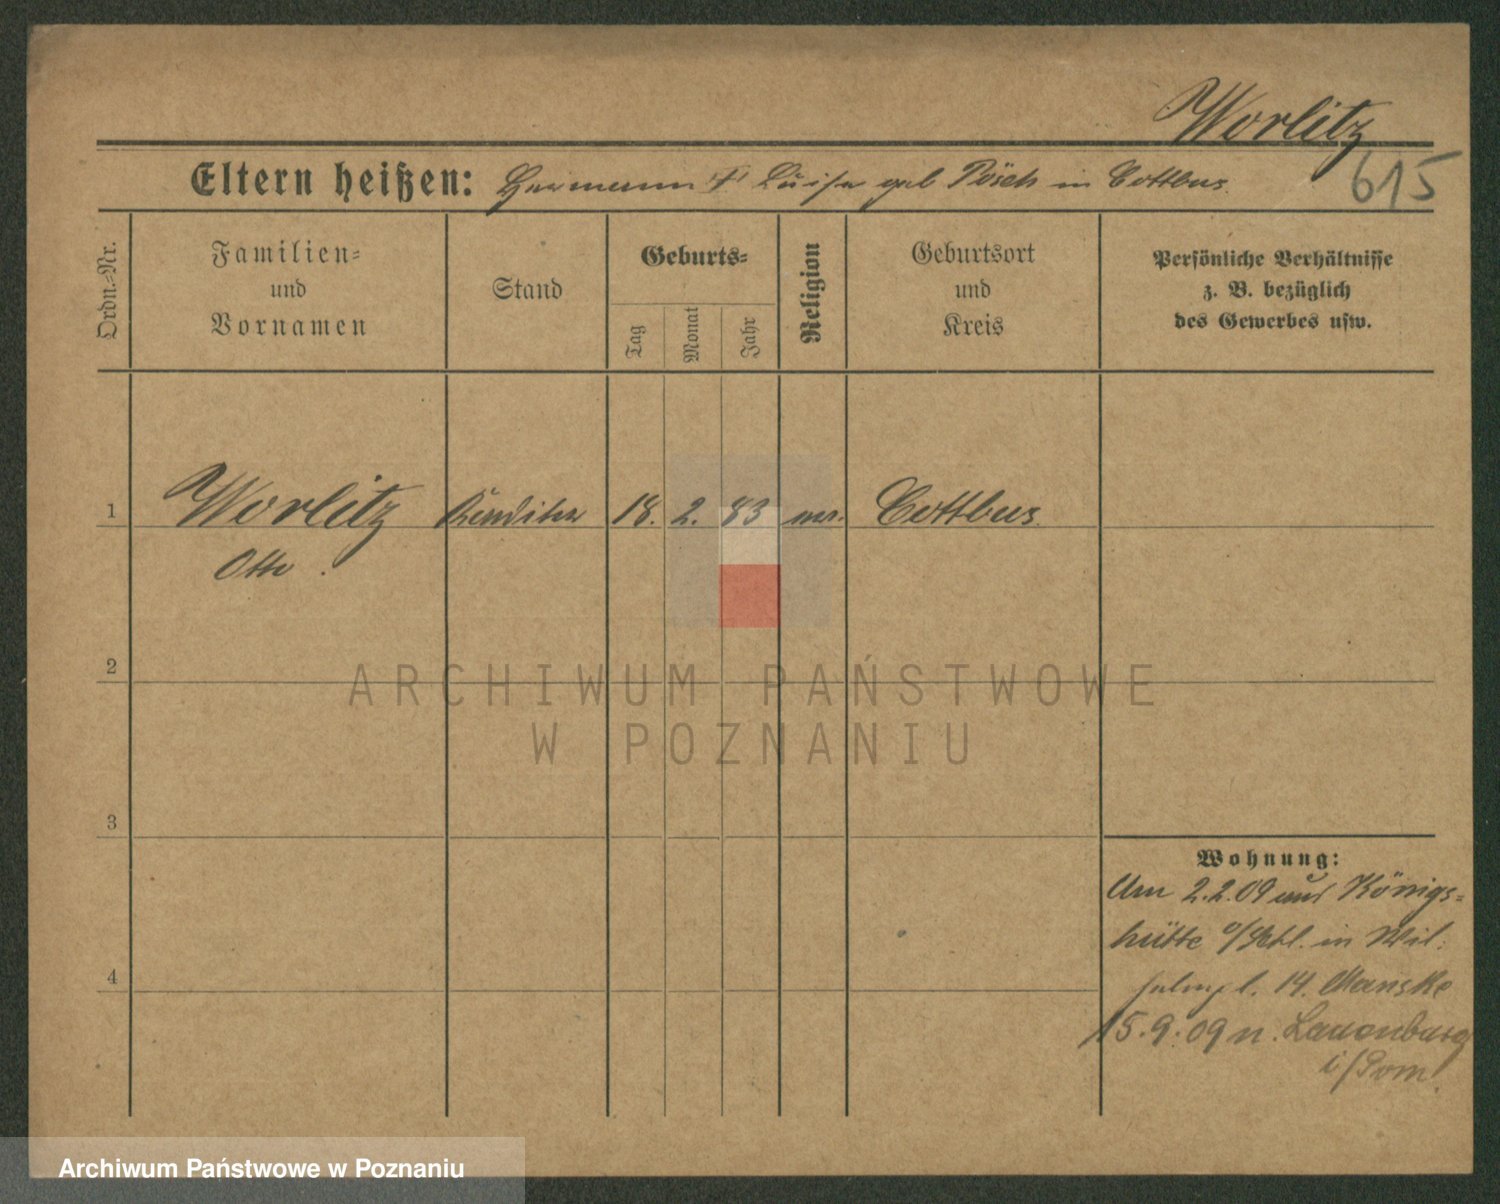 Worlitz
615
Eltern heißen: Hermann † Luise geb Pösch in Cottbus.
Ordn.-Nr.
Familien-
und
Vornamen
Stand
Geburts-
Tag
Monat
Jahr
Religion
Geburtsort
und
Kreis
Persönliche Verhältnisse
z. B. bezüglich
des Gewerbes usw.
1
Worlitz Konditor 18. 2. 83 Cottbus
Otto.
2
ARCHIWUM PAŃSTWOWE
W POZNANIU
3
Wohnung:
Am 2.2.09 aus Königs-
hütte o/Schl. in Wil-
helmpl. 14. Manske
4
15.9.09 n. Lauenburg
i/Pom.
Archiwum Państwowe w Poznaniu